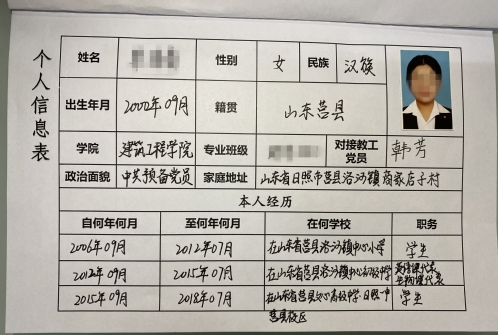 个人信息表
姓名 性别 女 民族 汉族
出生年月 2000年09月 籍贯 山东莒县
学院 建筑工程学院 专业班级 对接教工党员 韩芳
政治面貌 中共预备党员 家庭地址 山东省日照市莒县洛河镇商家店子村
本人经历
自何年何月 至何年何月 在何学校 职务
2006年09月 2012年07月 在山东省莒县洛河镇中心小学 学生
2012年09月 2015年07月 在山东省莒县洛河镇中心初级中学 英语课代表
生物课代表
2015年09月 2018年07月 在山东省莒县 高级中学·日照一中 学生
莒县校区